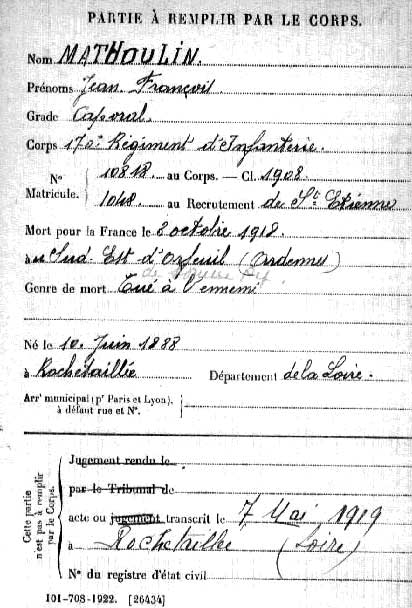 PARTIE À REMPLIR PAR LE CORPS.
Nom MATHOULIN.
Prénoms Jean François
Grade Caporal.
Corps 170e Régiment d'Infanterie.
N° Matricule. 10818 au Corps. — Cl. 1908
1048 au Recrutement de St Etienne
Mort pour la France le 2 octobre 1918.
à au Sud-Est d'Orfeuil (Ardennes)
Genre de mort Tué à l'ennemi
Né le 10 Juin 1888
à Rochetaillée Département de la Loire.
Arrt municipal (pr Paris et Lyon), à défaut rue et N°.
Cette partie n'est pas à remplir par le Corps.
Jugement rendu le
par le Tribunal de
acte ou jugement transcrit le 7 Mai 1919
à Rochetaillée (Loire)
N° du registre d'état civil
101-708-1922. [26434]